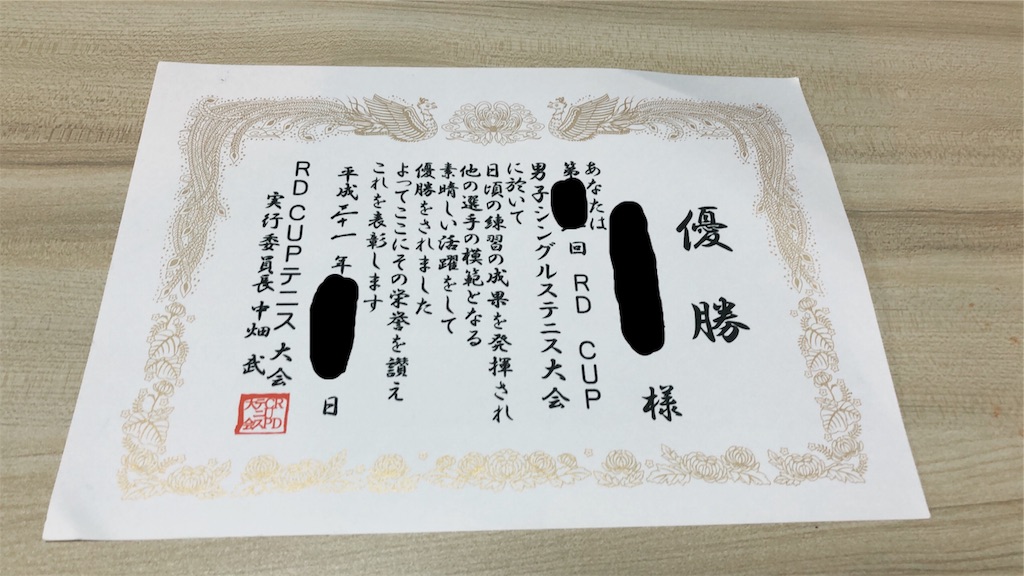 優勝
様
あなたは
第 回 RD CUP
男子シングルステニス大会
に於いて
日頃の練習の成果を発揮され
他の選手の模範となる
素晴しい活躍をして
優勝をされました
よってここにその栄誉を讃え
これを表彰します
平成二十一年 日
RD CUPテニス大会
実行委員長 中畑 武
RD
CUP
テニス
大会